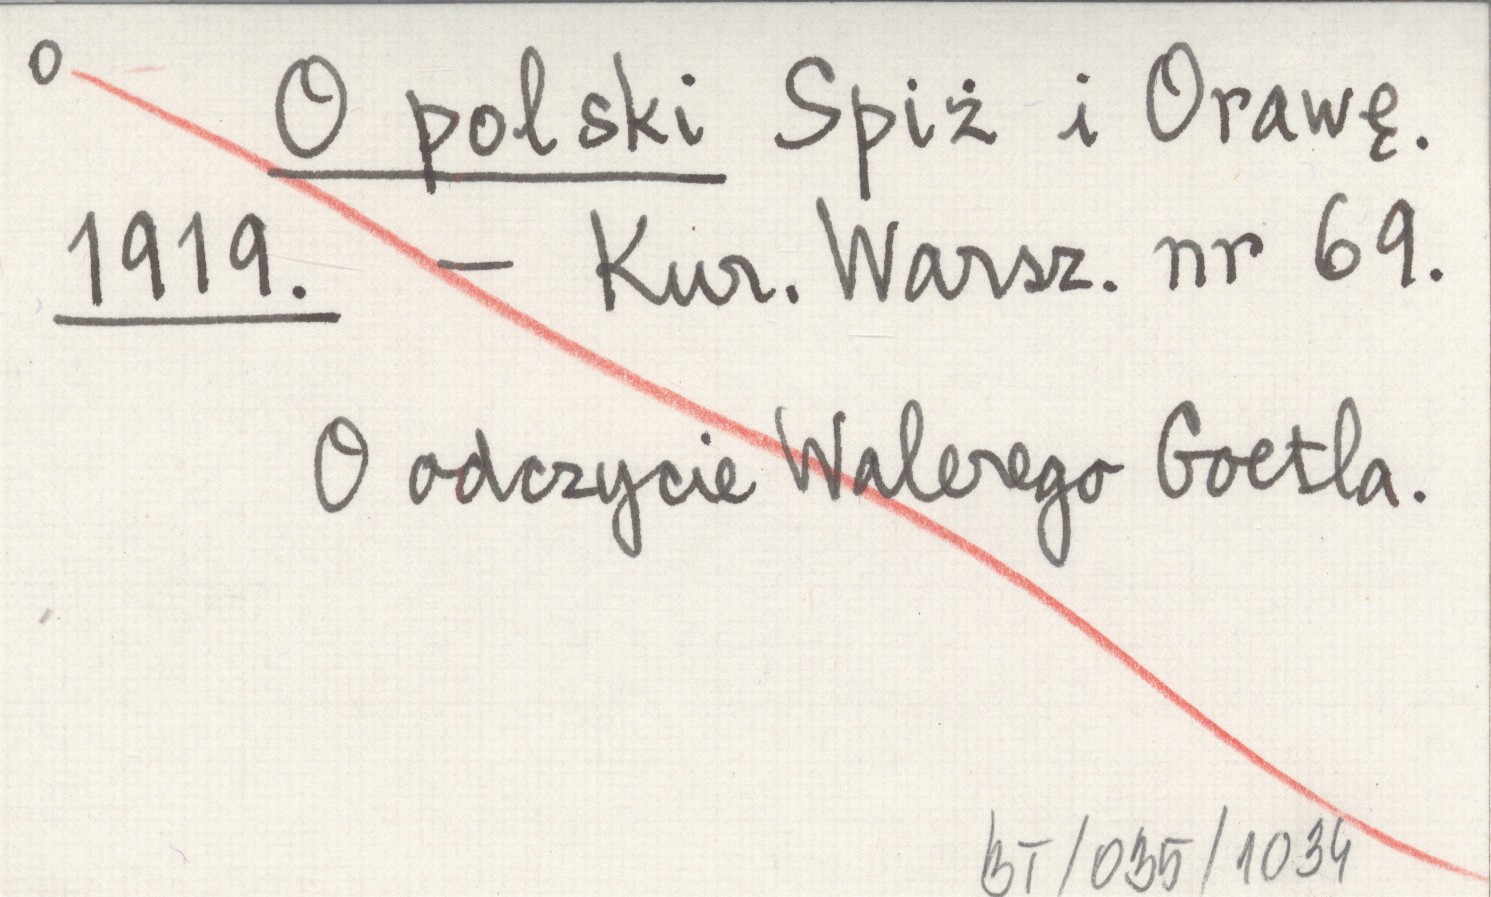 O
O polski Spiż i Orawę.
1919. — Kur. Warsz. nr 69.
O odczycie Walerego Goetla.
BT/035/1034